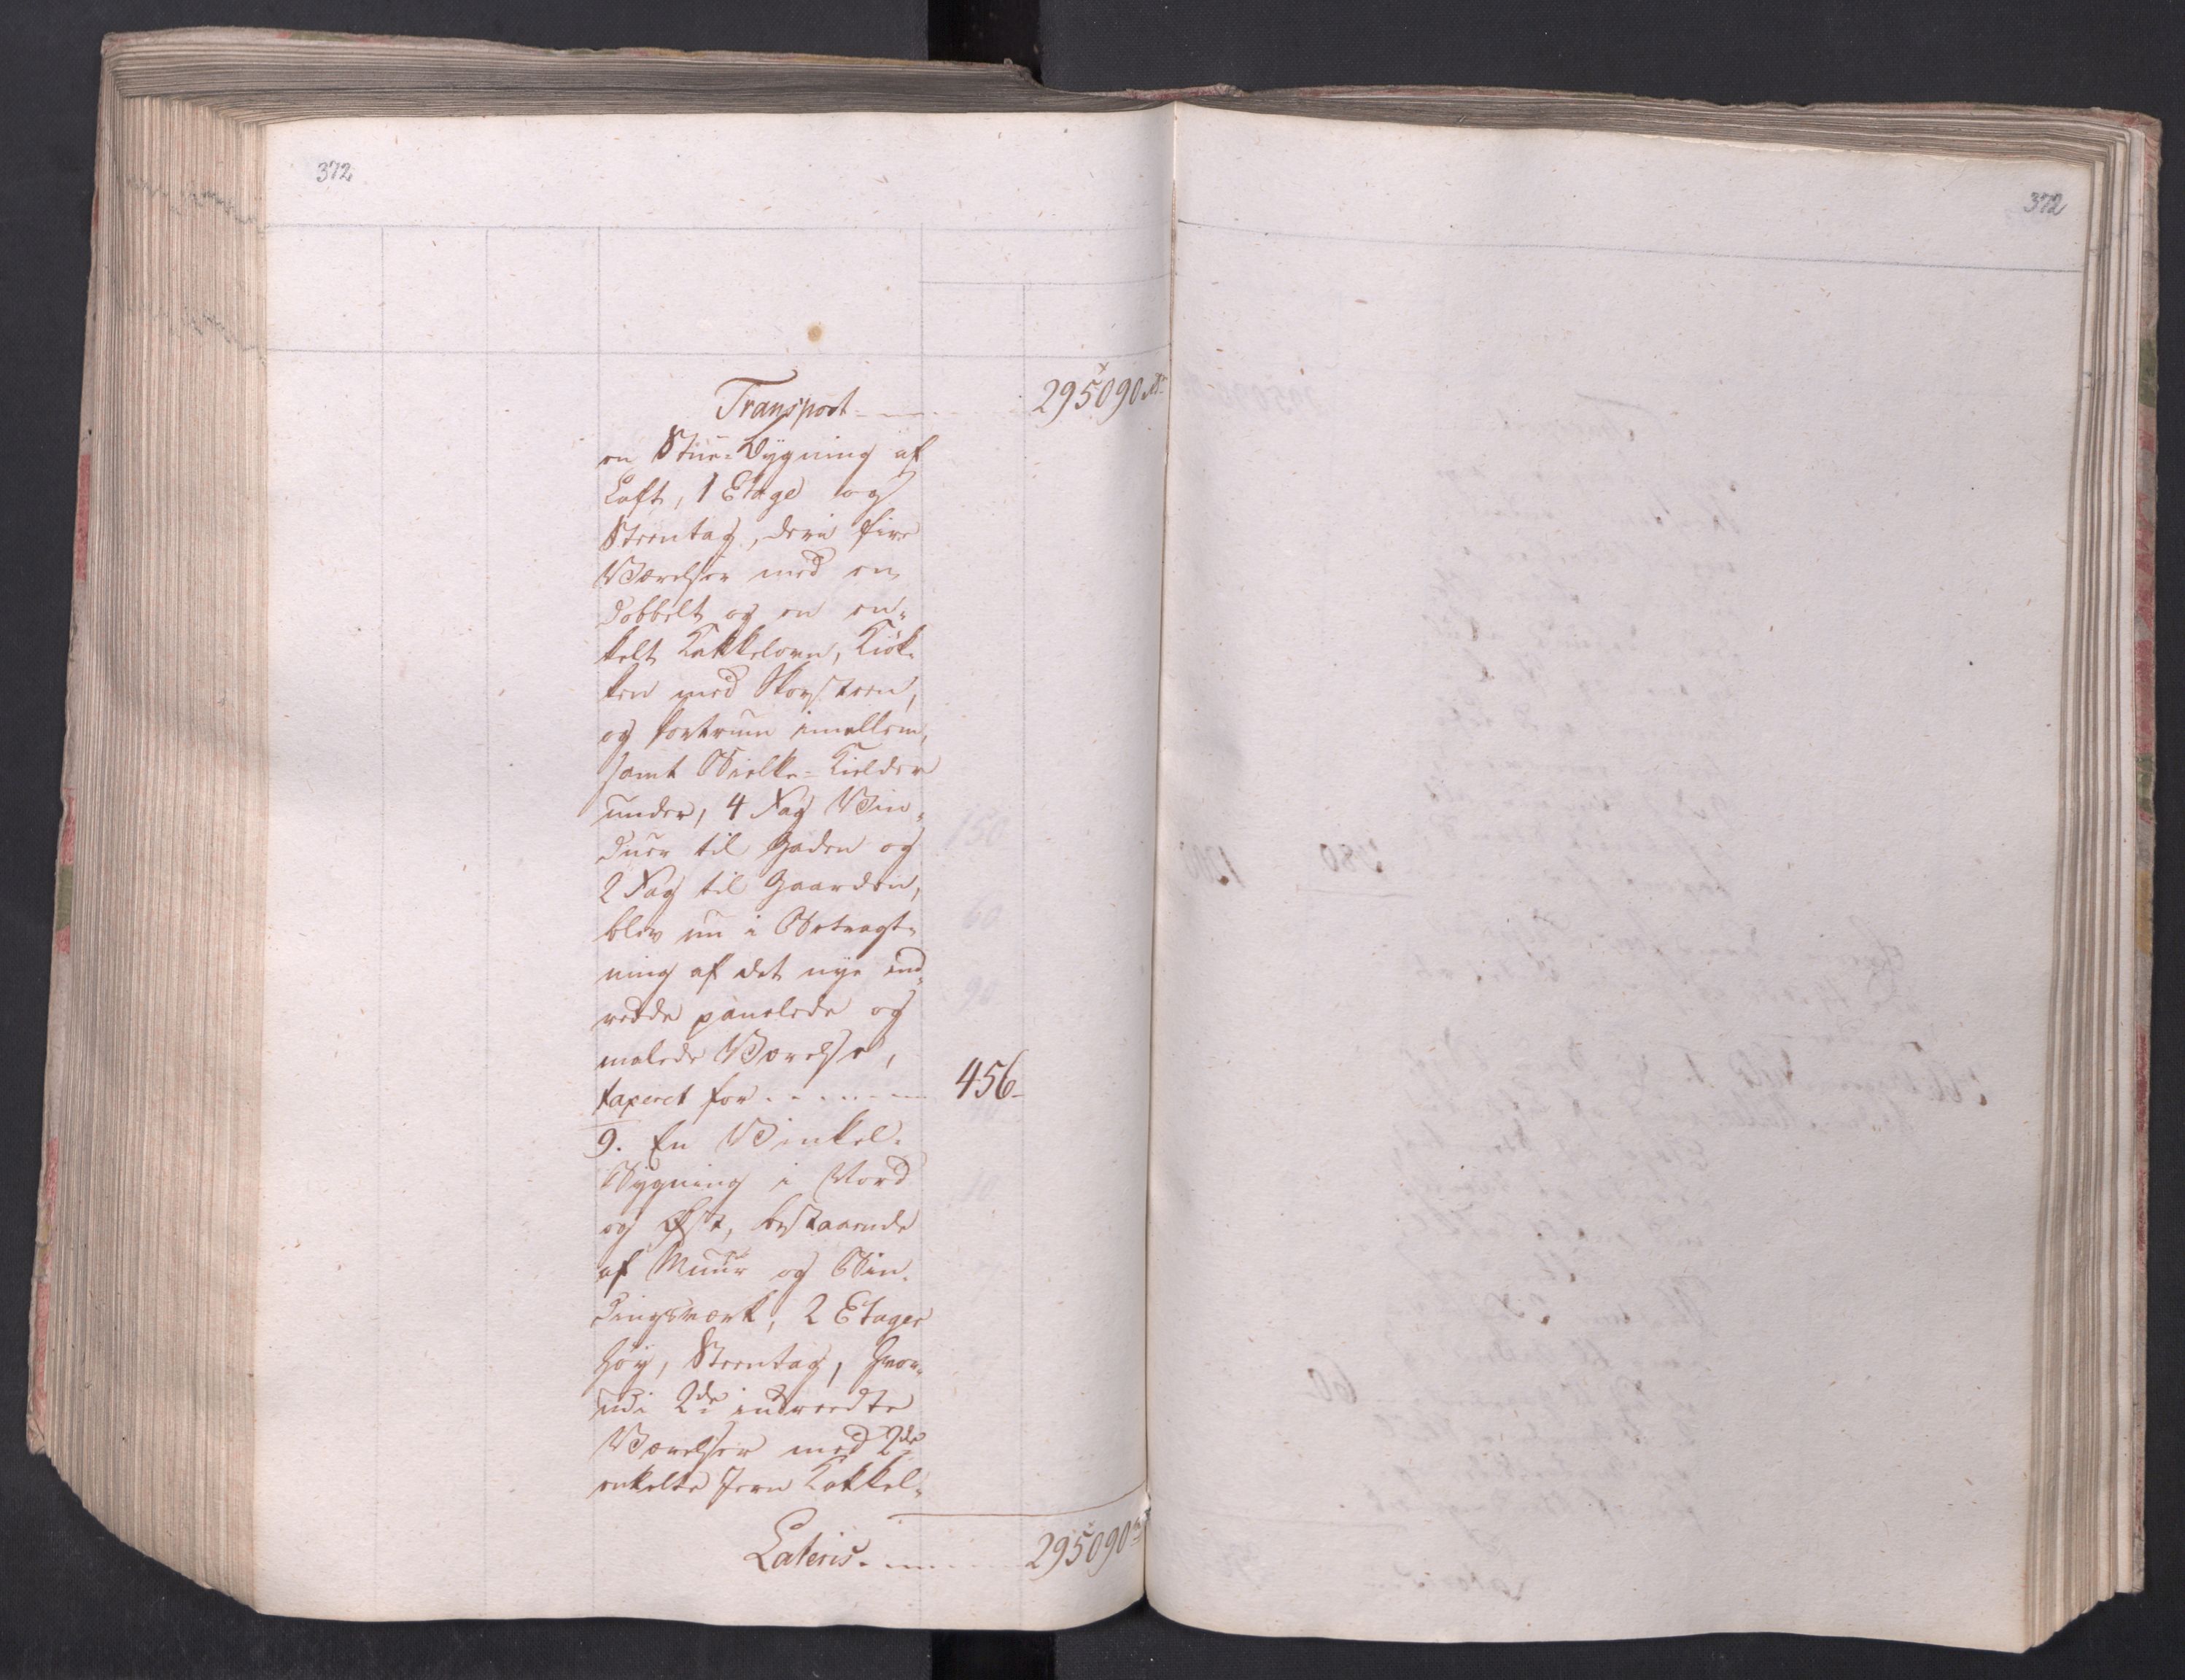 372
372
Transport 295090 Rdr
en Stue-Bygning af
Loft, 1 Etage og
Steentag, deri fire
Værelser med en
dobbelt og en en-
kelt Kakkelovn, Kiøk-
ken med Skorsteen,
og Fortrum imellem,
samt Bielke-Kielder
under, 4 Fag Vin-
duer til Gaden og
2 Fag til Gaarden,
blev nu i Betragt-
ning af det nye ind-
redde panelede og
malede Værelse,
taxeret for 456-
9. En Vinkel-
Bygning i Nord
og Øst, bestaaende
af Muur og Bin-
dingsværk, 2 Etager
høy, Steentag, hvor-
udi 2de indreedte
Værelser med 2de
enkelte Jern Kakkel-
Lateris 295090